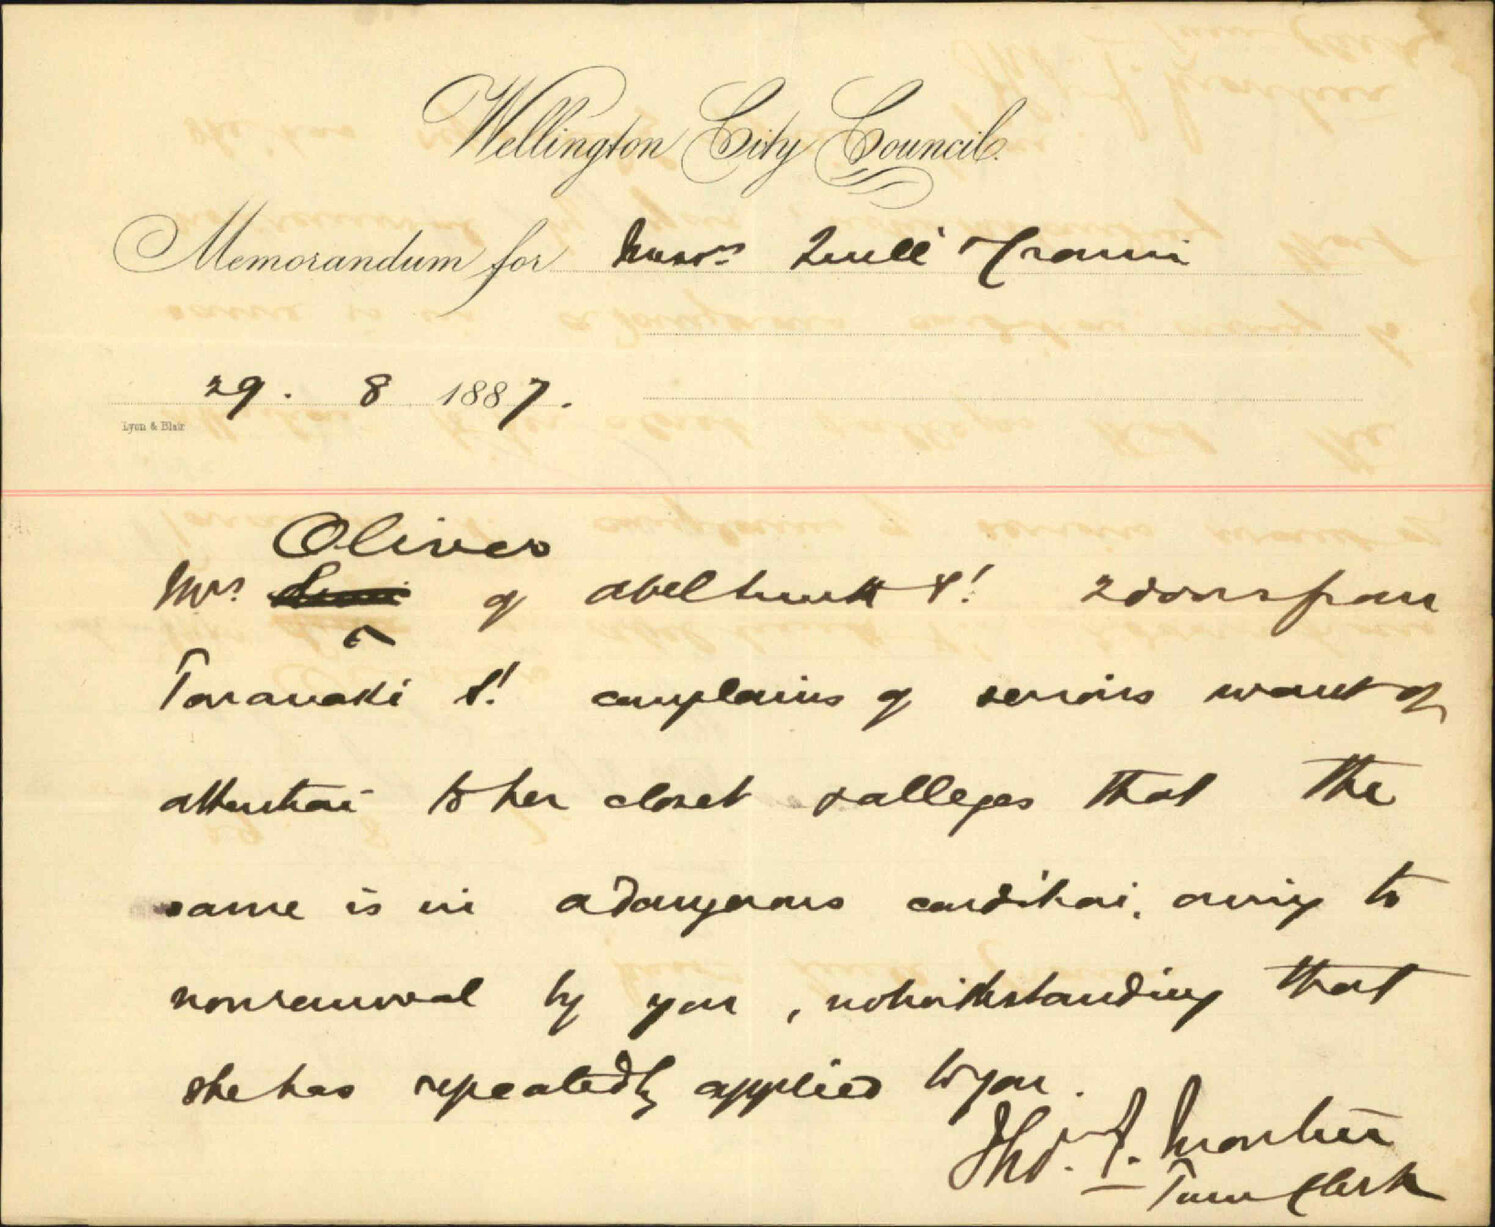 Wellington City Council.
Memorandum for Messrs Quill & Cronin
29. 8 1887.
Lyon & Blair
Oliver
Mrs of Abel Smith St. 2 doors from
Taranaki St. complains of serious want of
attention to her closet & alleges that the
same is in a dangerous condition, owing to
nonremoval by you, notwithstanding that
she has repeatedly applied to you.
Thos. F. Martin
Town Clerk